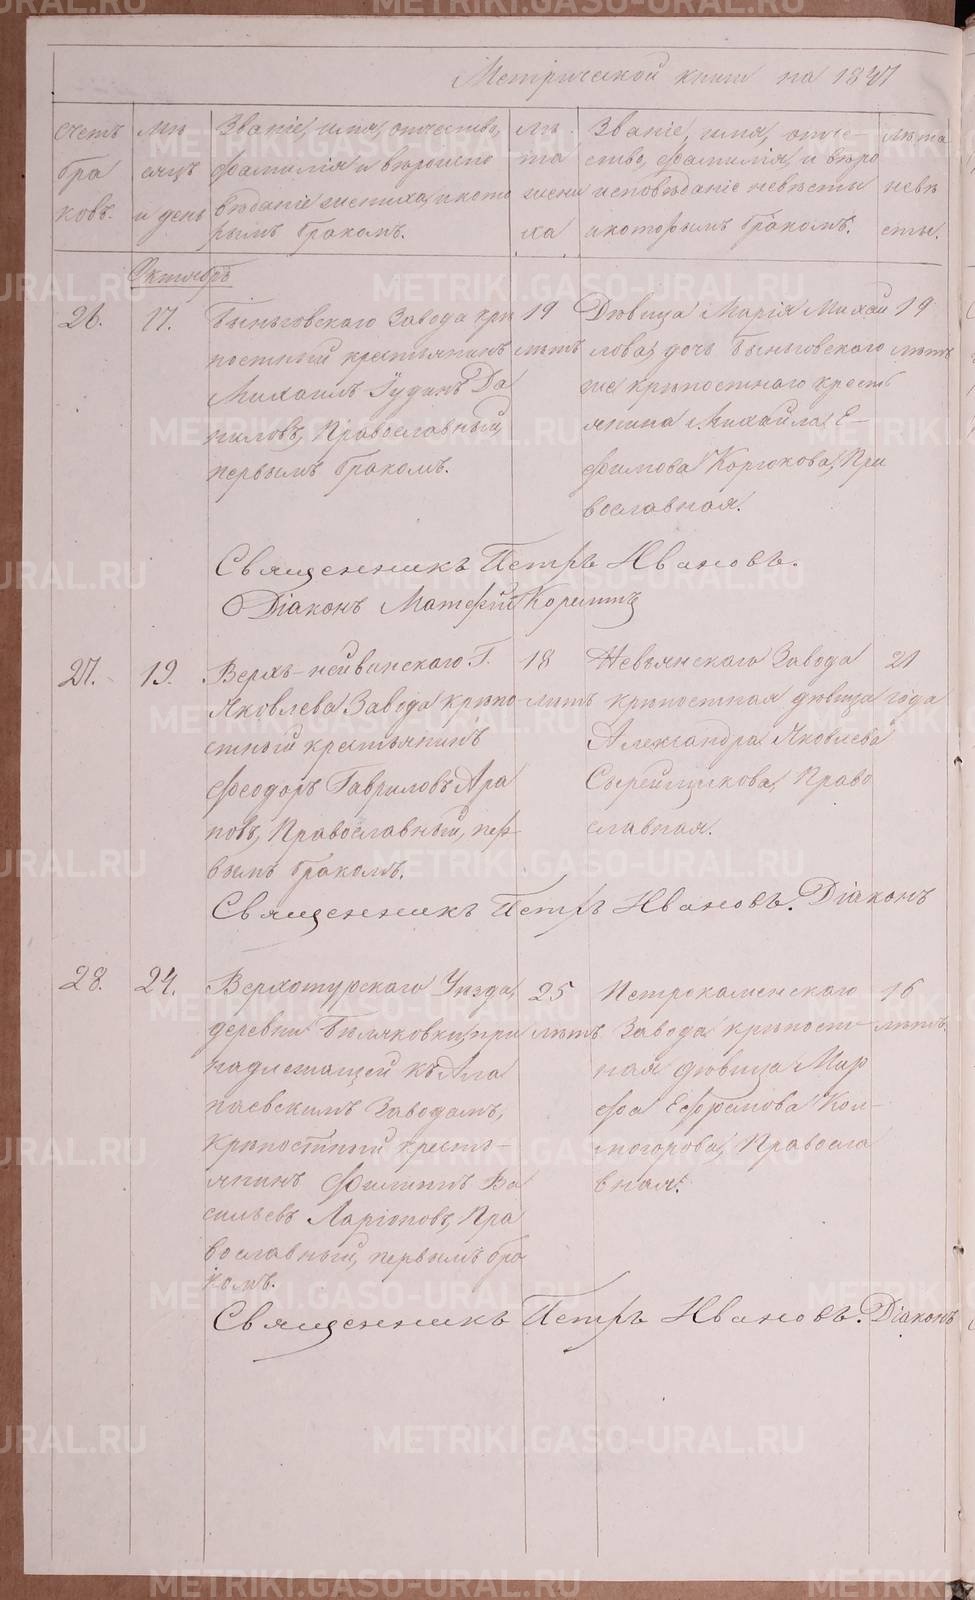 Метрической книги на 1847
счетъ браковъ.
мѣсяцъ и день
Званіе, имя, отчество,
фамилія и вѣроиспо
вѣданіе жениха, и кото
рымъ бракомъ.
лѣ
та
жени
ха
Званіе, имя, отче-
ство, фамилія, и вѣро
исповѣданіе невѣсты
и которымъ бракомъ.
лѣта
невѣ
сты.
Октябрь
26.
17.
Быньговскаго Завода крѣ
постный крестьянинъ
Михаилъ Іудинъ Да
ниловъ, Православный,
первымъ бракомъ.
19
лѣтъ
Дѣвица Марія Михай
лова, дочь Быньговскаго
же крѣпостнаго кресть
янина Михайла Е-
фимова Корюкова, Пра
вославная.
19
лѣтъ
Священникъ Петръ Ивановъ.
Діаконъ Матфій
27.
19.
Верхъ-нейвинскаго Г.
Яковлева Завода крѣпо-
стный крестьянинъ
Феодоръ Гавриловъ Ара
повъ, Православный, пер-
вымъ бракомъ.
18
лѣтъ
Невьянскаго Завода
крѣпостная дѣвица
Александра Яковлева
Сырейщикова, Право
славная.
21
года
Священникъ Петръ Ивановъ. Діаконъ
28.
24.
Верхотурскаго Уѣзда,
деревни Бѣляковки, при
надлежащей къ Ала
паевскимъ Заводамъ,
крѣпостный кресть-
янинъ Филиппъ Ва
сильевъ Ларіоновъ, Пра
вославный, первымъ бра
комъ.
25
лѣтъ
Петрокаменскаго
Завода крѣпост-
ная дѣвица Мар
фа Ефремова Кол-
могорова, Правосла
вная.
16
лѣтъ
Священникъ Петръ Ивановъ. Діаконъ
METRIKI.GASO-URAL.RU